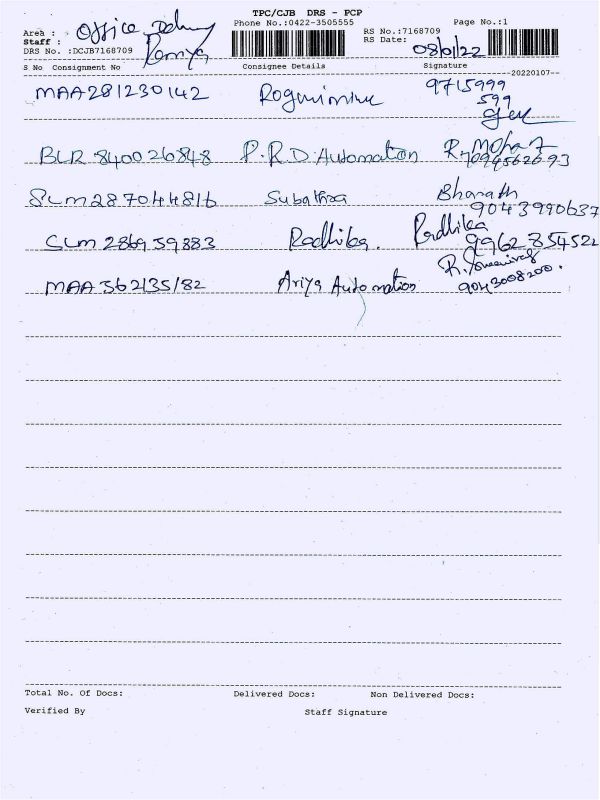 TPC/CJB DRS - PCP
Phone No.:0422-3505555
Page No.:1
Area : Office Delivery
Staff : Ramya
DRS No. :DCJB7168709
RS No.:7168709
RS Date: 08/01/22
S No Consignment No Consignee Details Signature
20220107
MAA281230142 9715999
599
BLR 840026848 P.R.D. Automation R. Mohan
SLM287044816 Subathra Bharath
9043990637
SLM 286959883 Radhika. Radhika
9962354522
MAA 562135182 Ariya Automation
9043008200.
Total No. Of Docs: Delivered Docs: Non Delivered Docs:
Verified By Staff Signature